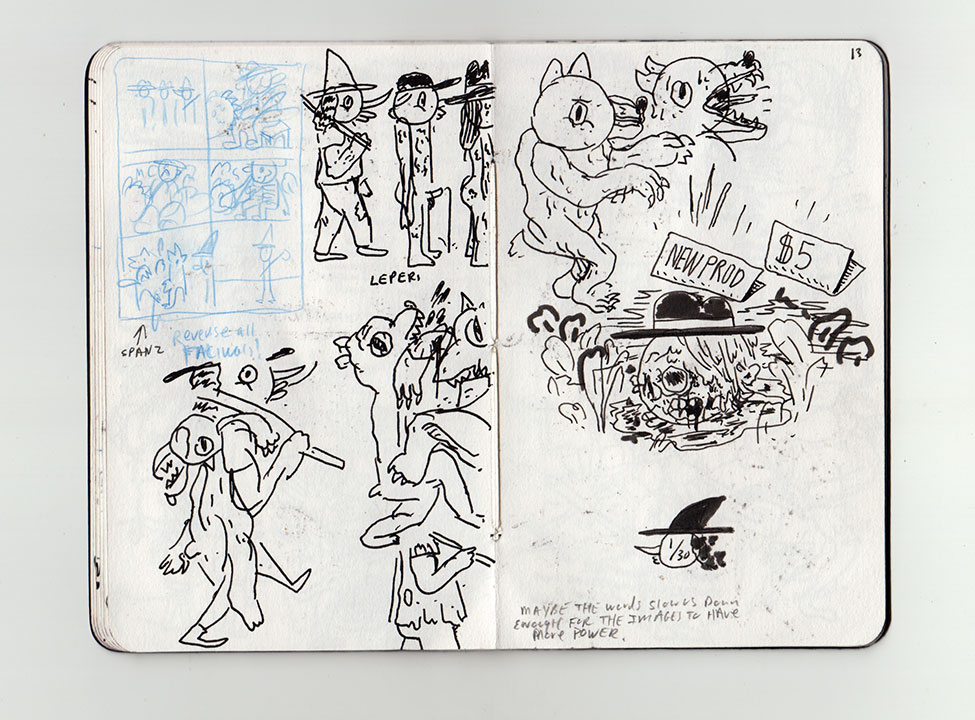 LEPER.
SPANZ
Reverse all
13
NEW PROD
$5
1/30
MAYBE THE words Slows Down
Enough FOR THE IMAGES TO HAVE
More POWER.